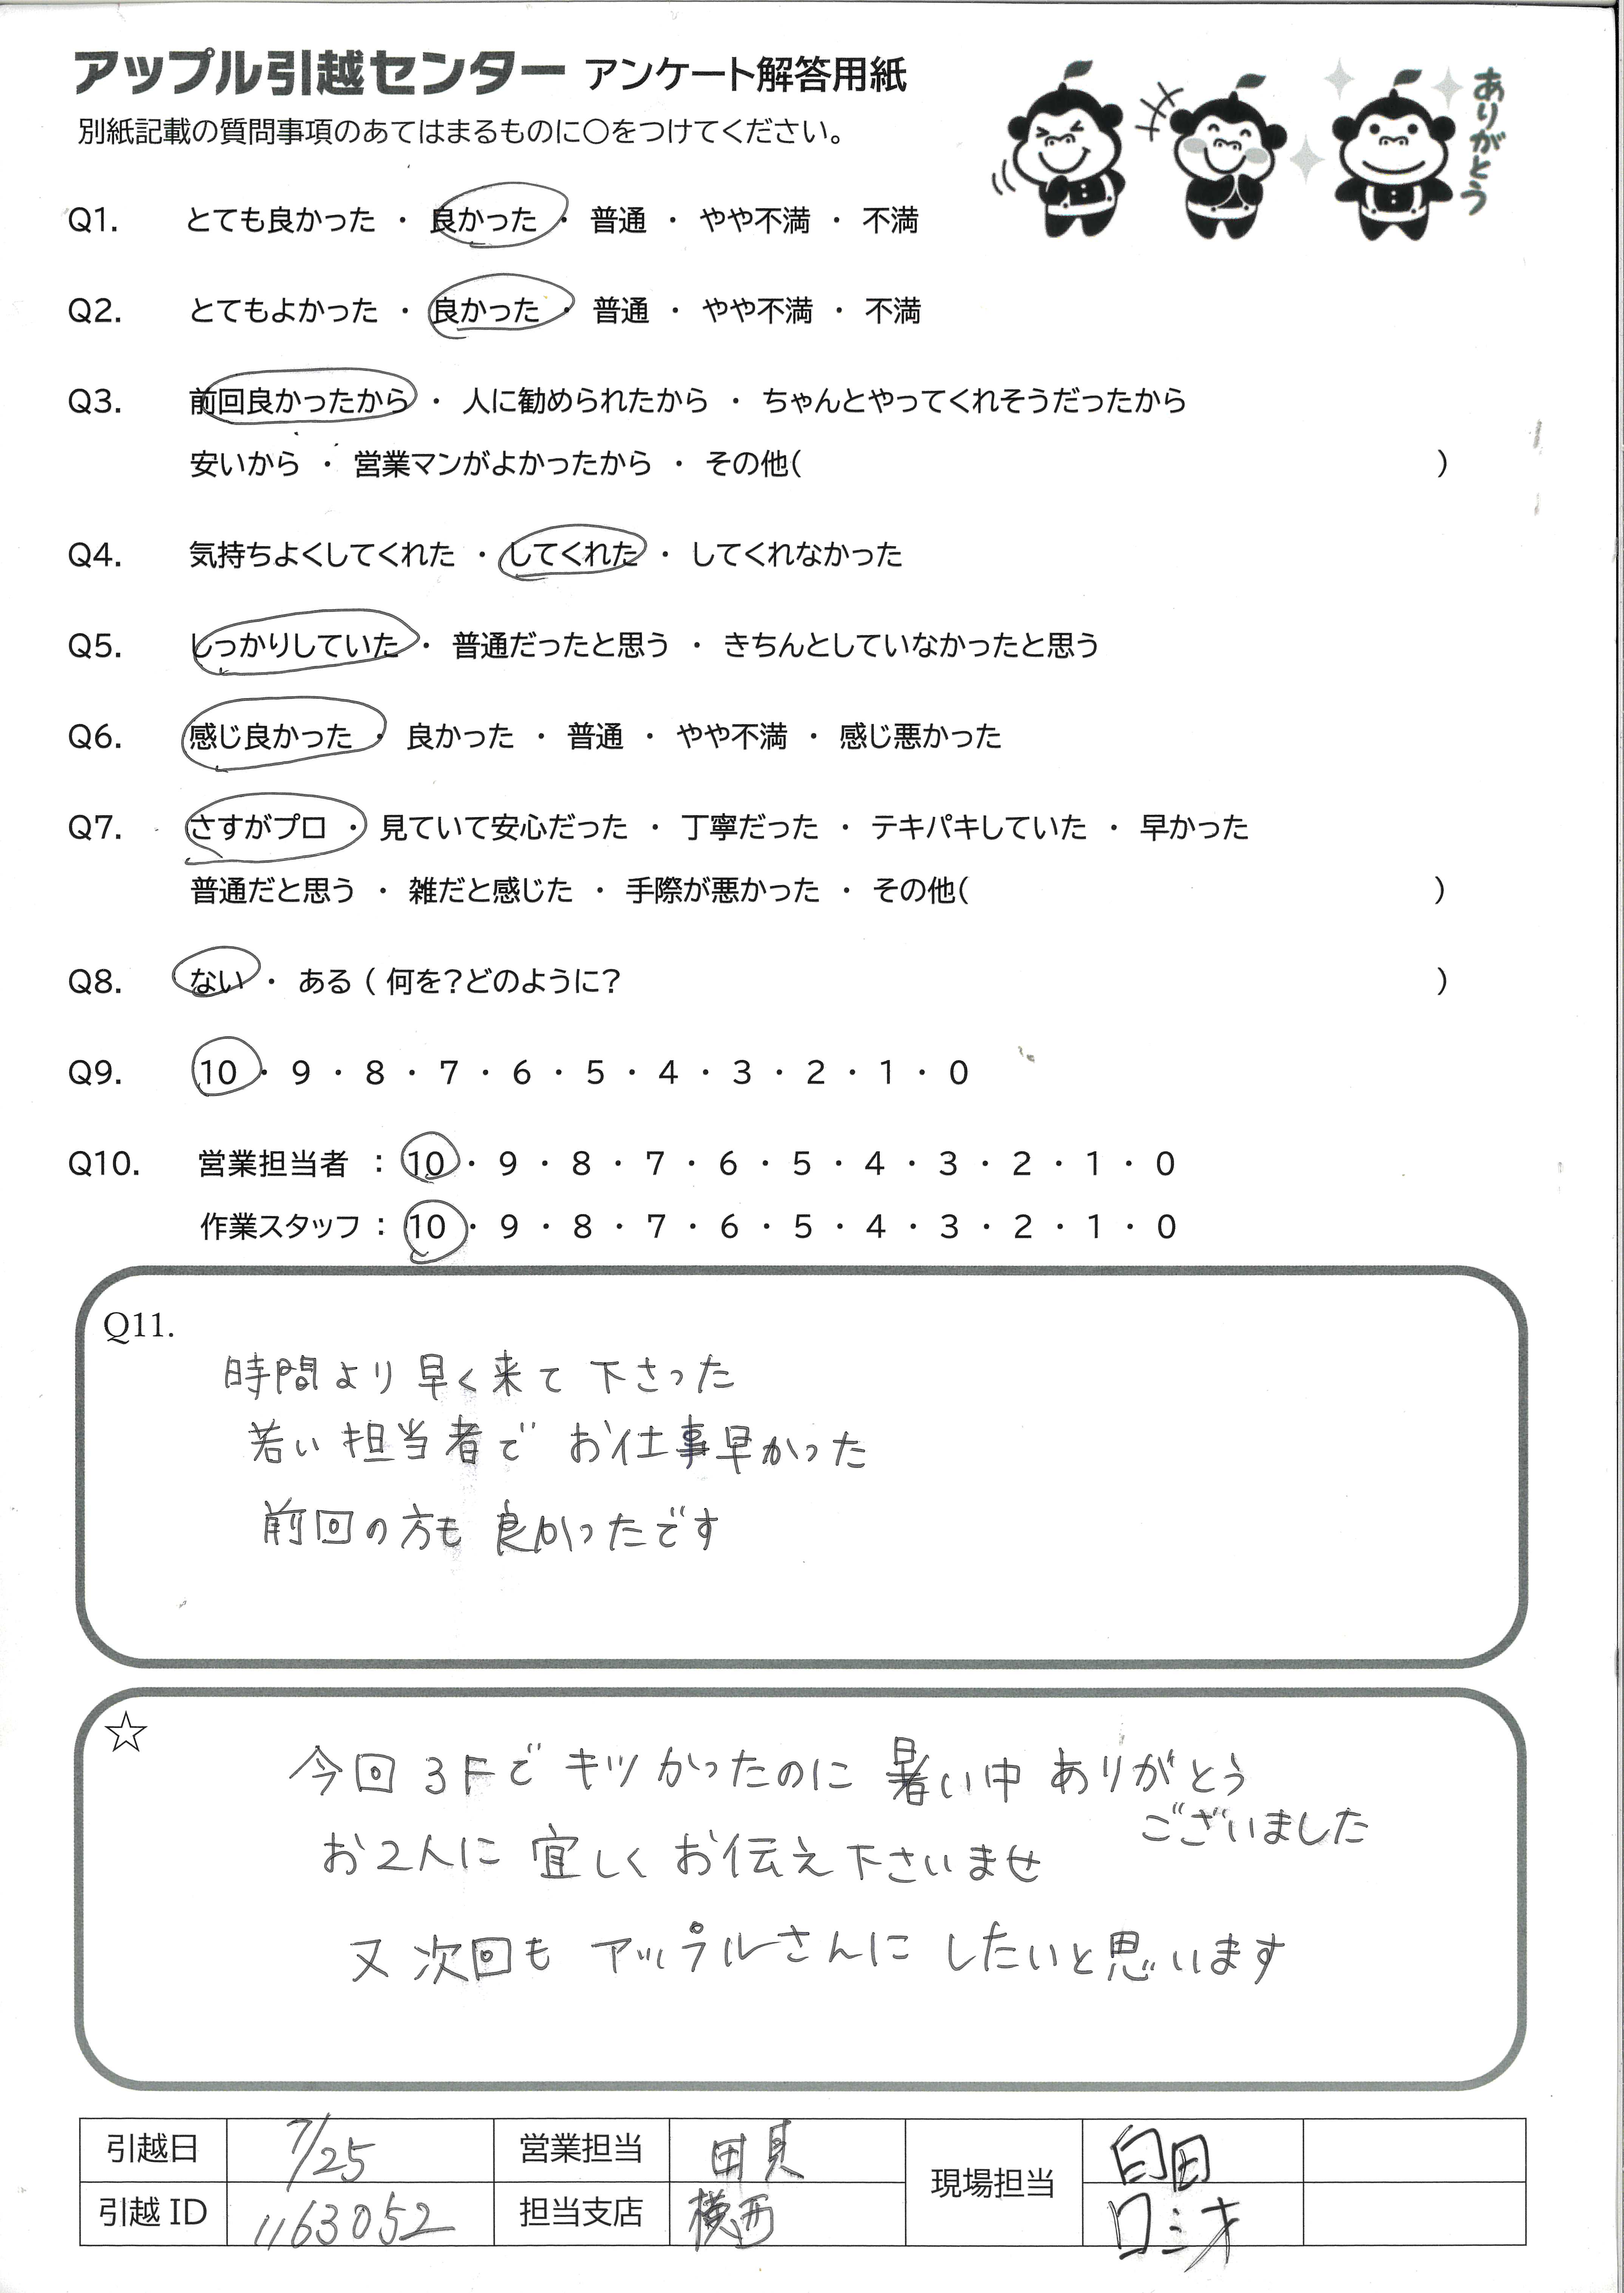 アップル引越センター アンケート解答用紙
ありがとう
別紙記載の質問事項のあてはまるものに〇をつけてください。
Q1. とても良かった ・ 良かった ・ 普通 ・ やや不満 ・ 不満
Q2. とてもよかった ・ 良かった ・ 普通 ・ やや不満 ・ 不満
Q3. 前回良かったから ・ 人に勧められたから ・ ちゃんとやってくれそうだったから
安いから ・ 営業マンがよかったから ・ その他( )
Q4. 気持ちよくしてくれた ・ してくれた ・ してくれなかった
Q5. しっかりしていた ・ 普通だったと思う ・ きちんとしていなかったと思う
Q6. 感じ良かった ・ 良かった ・ 普通 ・ やや不満 ・ 感じ悪かった
Q7. さすがプロ ・ 見ていて安心だった ・ 丁寧だった ・ テキパキしていた ・ 早かった
普通だと思う ・ 雑だと感じた ・ 手際が悪かった ・ その他( )
Q8. ない ・ ある ( 何を?どのように? )
Q9. 10 ・ 9 ・ 8 ・ 7 ・ 6 ・ 5 ・ 4 ・ 3 ・ 2 ・ 1 ・ 0
Q10. 営業担当者 : 10 ・ 9 ・ 8 ・ 7 ・ 6 ・ 5 ・ 4 ・ 3 ・ 2 ・ 1 ・ 0
作業スタッフ : 10 ・ 9 ・ 8 ・ 7 ・ 6 ・ 5 ・ 4 ・ 3 ・ 2 ・ 1 ・ 0
Q11.
時間より早く来て下さった
若い担当者で お仕事早かった
前回の方も 良かったです
☆
今回3Fで キツかったのに 暑い中 ありがとう
ございました
お2人に 宜しく お伝え下さいませ
又 次回も アップルさんに したいと思います
引越日 7/25 営業担当 田貝 現場担当 臼田
引越ID 1163052 担当支店 横西 ロミオ